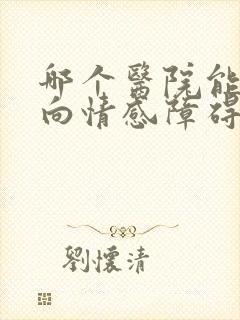 哪个醫院能
向情感障碍
劉懷清